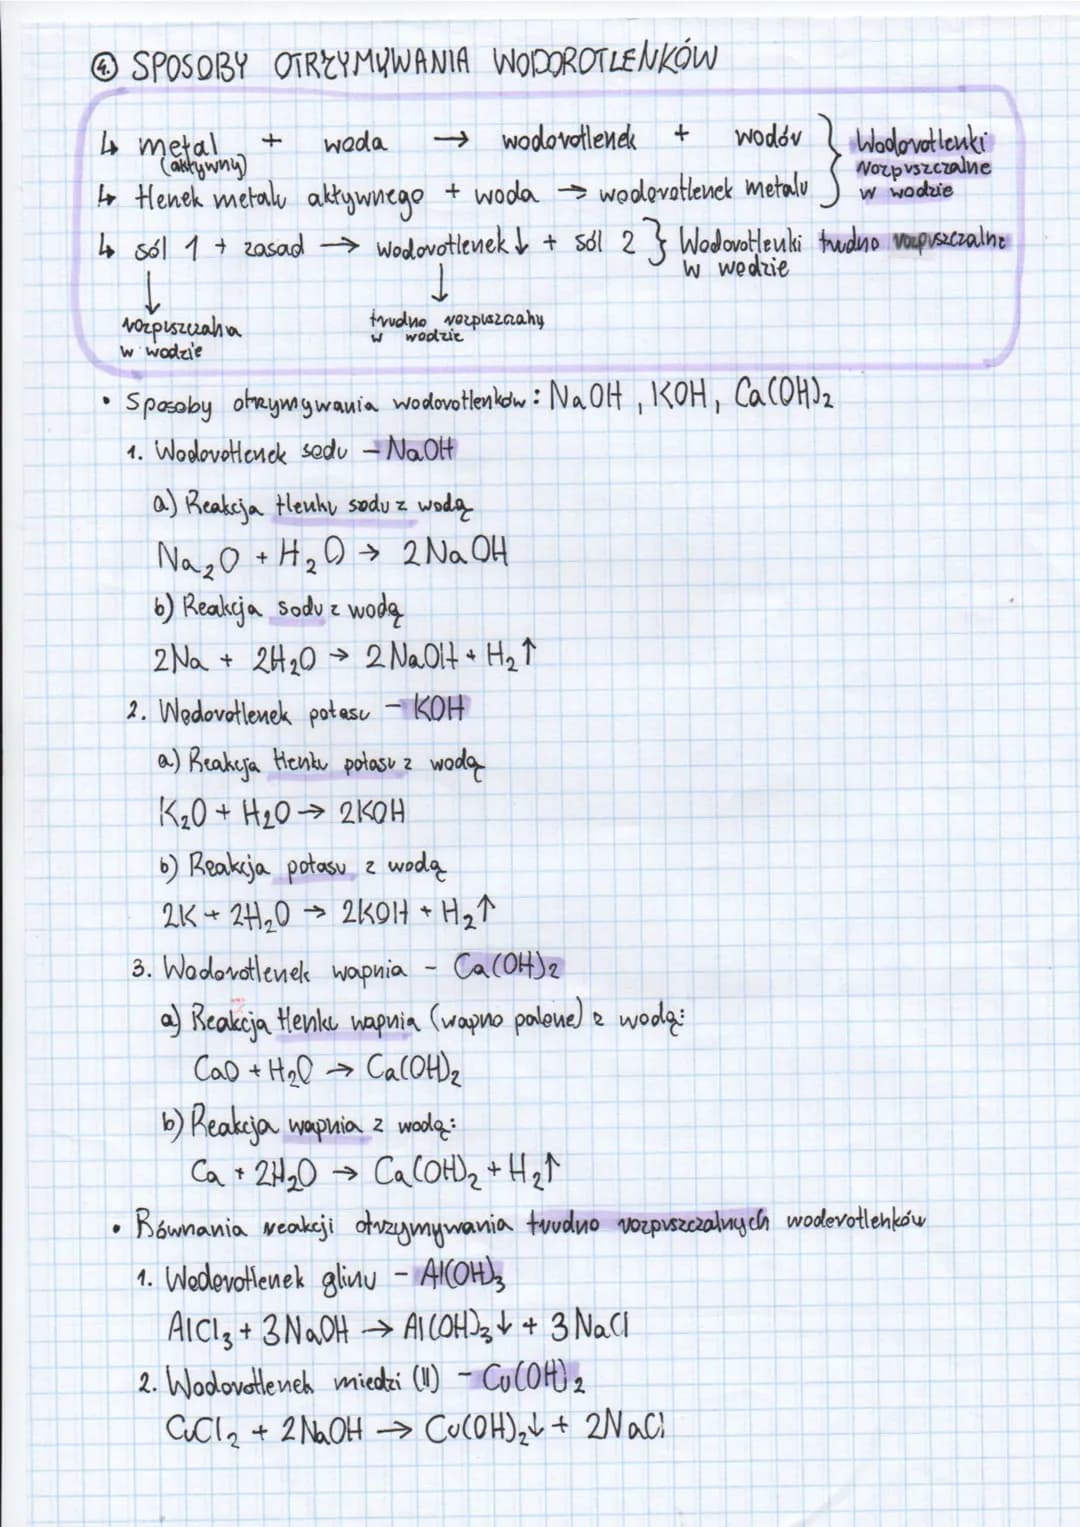 4. SPOSOBY OTRZYMYWANIA WODOROTLENKÓW
↳ metal + woda → wodorotlenek + wodór } Wodorotlenki
(aktywny) rozpuszczalne
↳ tlenek metalu aktywnego + woda → wodorotlenek metalu w wodzie
↳ sól 1 + zasad → wodorotlenek↓ + sól 2 } Wodorotlenki trudno rozpuszczalne
w wodzie
↓ ↓
rozpuszczalna trudno rozpuszczalny
w wodzie w wodzie
• Sposoby otrzymywania wodorotlenków: NaOH, KOH, Ca(OH)₂
1. Wodorotlenek sodu – NaOH
a) Reakcja tlenku sodu z wodą
Na₂O + H₂O → 2NaOH
b) Reakcja sodu z wodą
2Na + 2H₂O → 2NaOH + H₂↑
2. Wodorotlenek potasu – KOH
a) Reakcja tlenku potasu z wodą
K₂O + H₂O → 2KOH
b) Reakcja potasu z wodą
2K + 2H₂O → 2KOH + H₂↑
3. Wodorotlenek wapnia – Ca(OH)₂
a) Reakcja tlenku wapnia (wapno palone) z wodą:
CaO + H₂O → Ca(OH)₂
b) Reakcja wapnia z wodą:
Ca + 2H₂O → Ca(OH)₂ + H₂↑
• Równania reakcji otrzymywania trudno rozpuszczalnych wodorotlenków
1. Wodorotlenek glinu – Al(OH)₃
AlCl₃ + 3NaOH → Al(OH)₃↓ + 3NaCl
2. Wodorotlenek miedzi (II) – Cu(OH)₂
CuCl₂ + 2NaOH → Cu(OH)₂↓ + 2NaCl